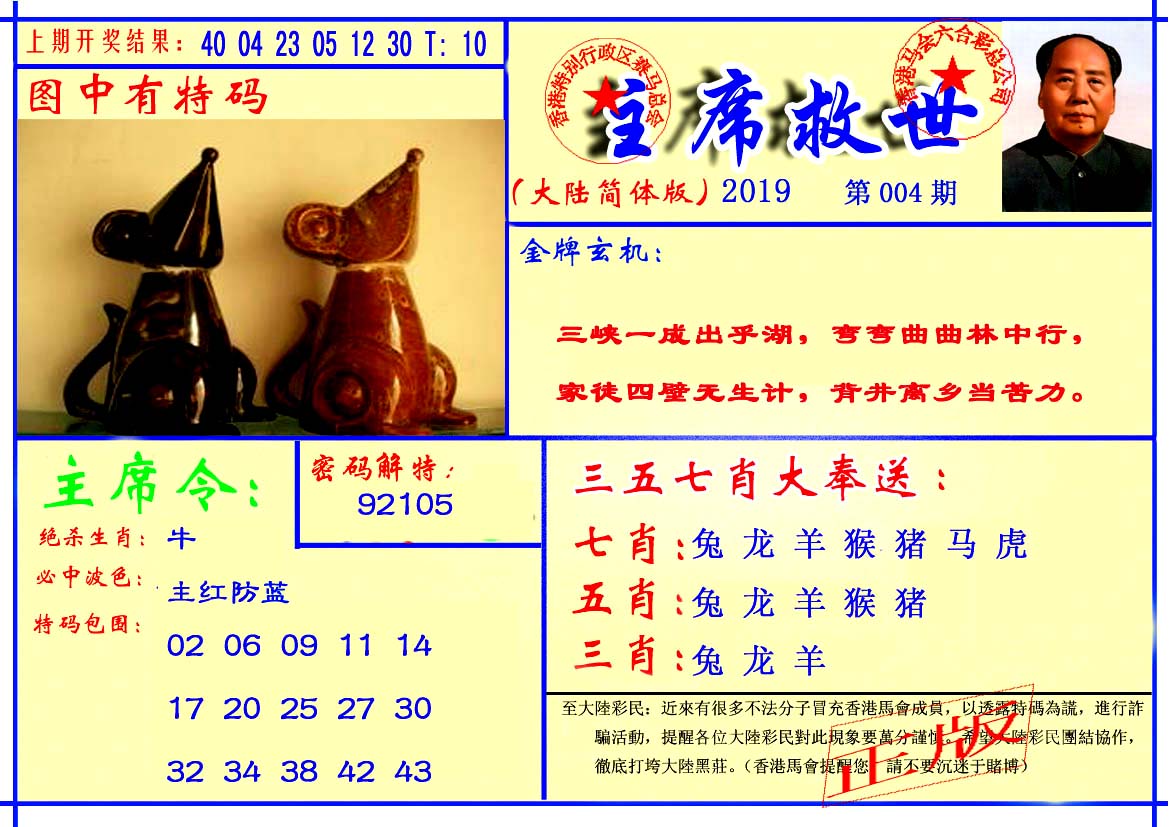 上期开奖结果：40 04 23 05 12 30 T：10
图中有特码
香港特别行政区赛马总会
香港马会六合彩总公司
主席救世
（大陆简体版）2019 第 004 期
金牌玄机：
三峡一成出乎湖，弯弯曲曲林中行，
家徒四壁无生计，背井离乡当苦力。
主席令：
绝杀生肖：牛
必中波色：主红防蓝
特码包围：
02 06 09 11 14
17 20 25 27 30
32 34 38 42 43
密码解特：
92105
三五七肖大奉送：
七肖：兔 龙 羊 猴 猪 马 虎
五肖：兔 龙 羊 猴 猪
三肖：兔 龙 羊
至大陸彩民：近來有很多不法分子冒充香港馬會成員，以透露特碼為謊，進行詐
騙活動，提醒各位大陸彩民對此現象要萬分謹慎。希望大陸彩民團結協作，
徹底打垮大陸黑莊。（香港馬會提醒您 請不要沉迷于賭博）
正版